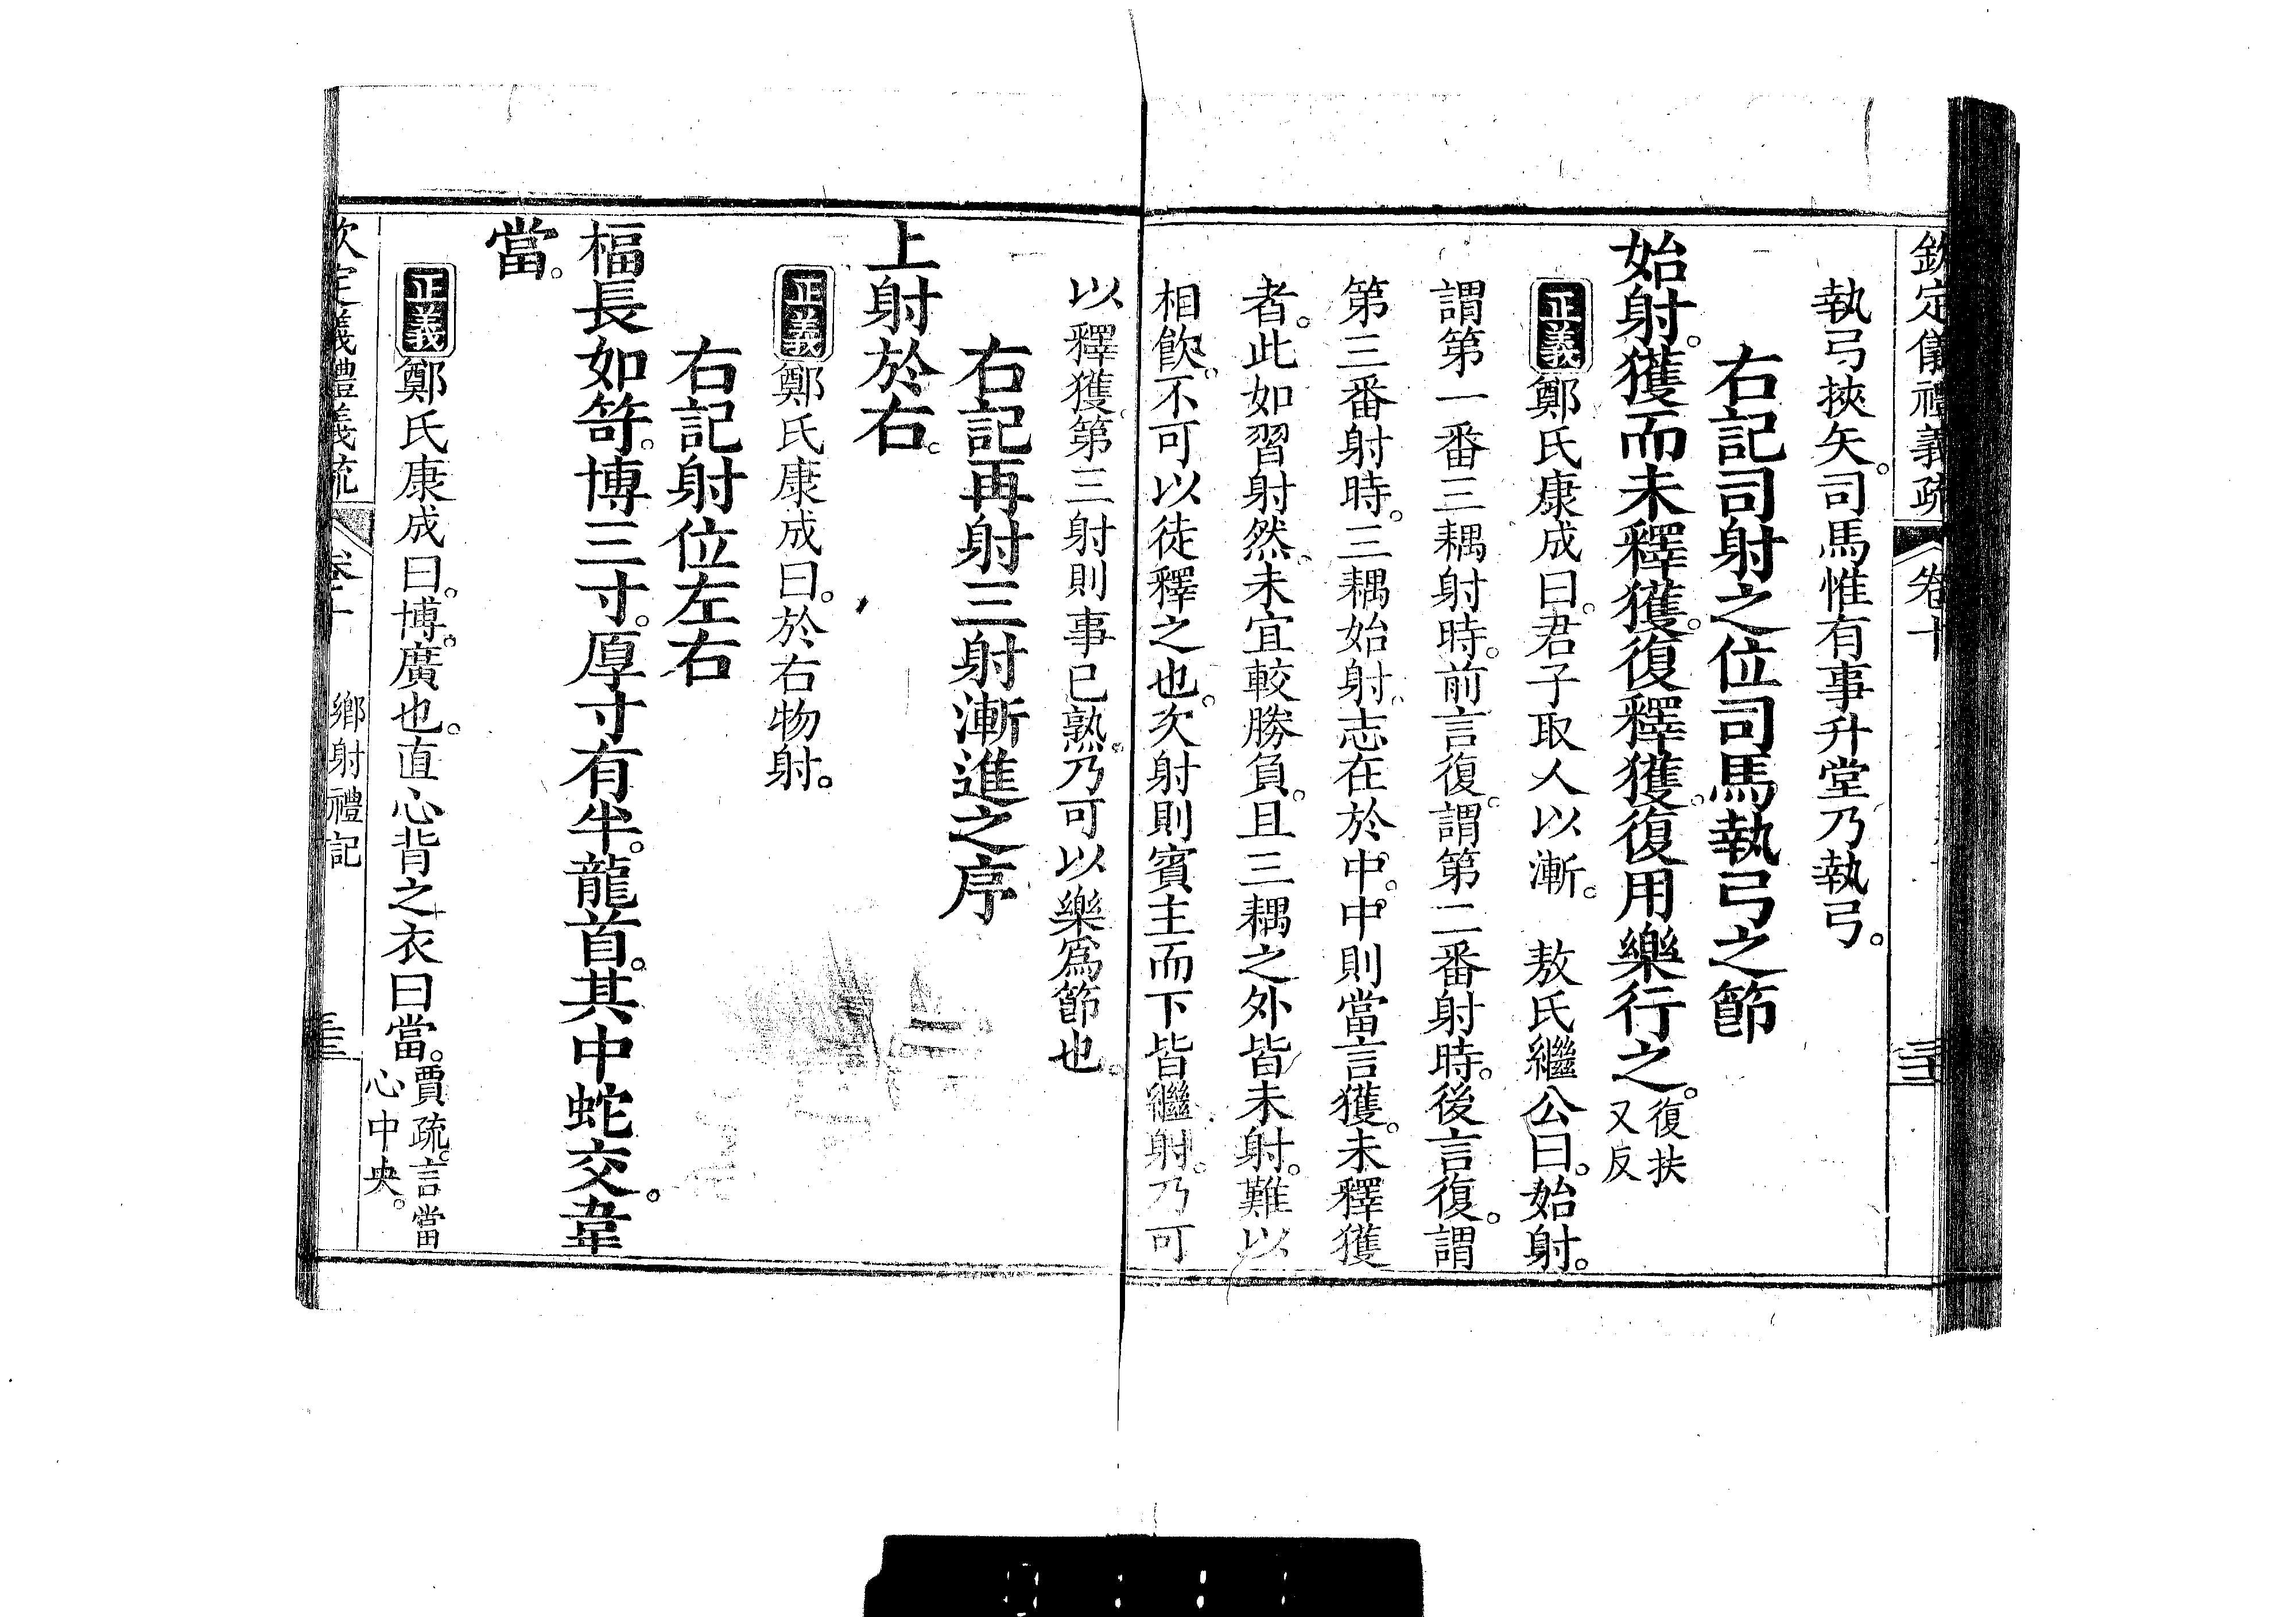 欽定儀禮義疏 卷十
執弓挾矢。司馬惟有事升堂乃執弓。
右記司射之位司馬執弓之節
始射。獲而未釋獲。復釋獲。復用樂行之。復扶又反
正義鄭氏康成曰。君子取人以漸。 敖氏繼公曰。始射。
謂第一番三耦射時。前言復。謂第二番射時。後言復。謂
第三番射時。三耦始射。志在於中。中則當言獲。未釋獲
者。此如習射然。未宜較勝負。且三耦之外皆未射。難以
相飮。不可以徒釋之也。次射則賓主而下皆繼射。乃可
以釋獲。第三射則事已熟。乃可以樂爲節也。
右記再射三射漸進之序
上射於右。
正義鄭氏康成曰。於右物射。
右記射位左右
楅長如笴。博三寸。厚寸有半。龍首。其中蛇交。韋
當。
正義鄭氏康成曰。博。廣也。直心背之衣曰當。賈疏。言當心中央。
欽定儀禮義疏 卷十 鄉射禮記